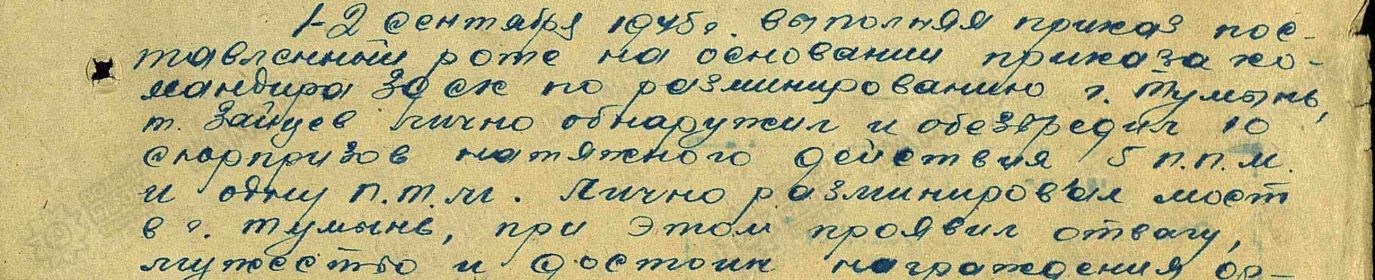 1-2 сентября 1945 г. выполняя приказ пос-
тавленный роте на основании приказа ко-
мандира 39 ск по разминированию г. Тумынь,
т. Зайцев лично обнаружил и обезвредил 10
сюрпризов натяжного действия 5 п.п.м.
и одну п.т.м. Лично разминировал мост
в г. Тумынь, при этом проявил отвагу,
мужество и достоин награждения ор-